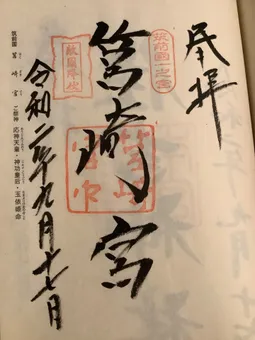 奉拝
筑前国一之宮
筥崎宮
敵國降伏
令和二年九月十七日
筑前國 筥崎宮 ご祭神 応神天皇・神功皇后・玉依姫命